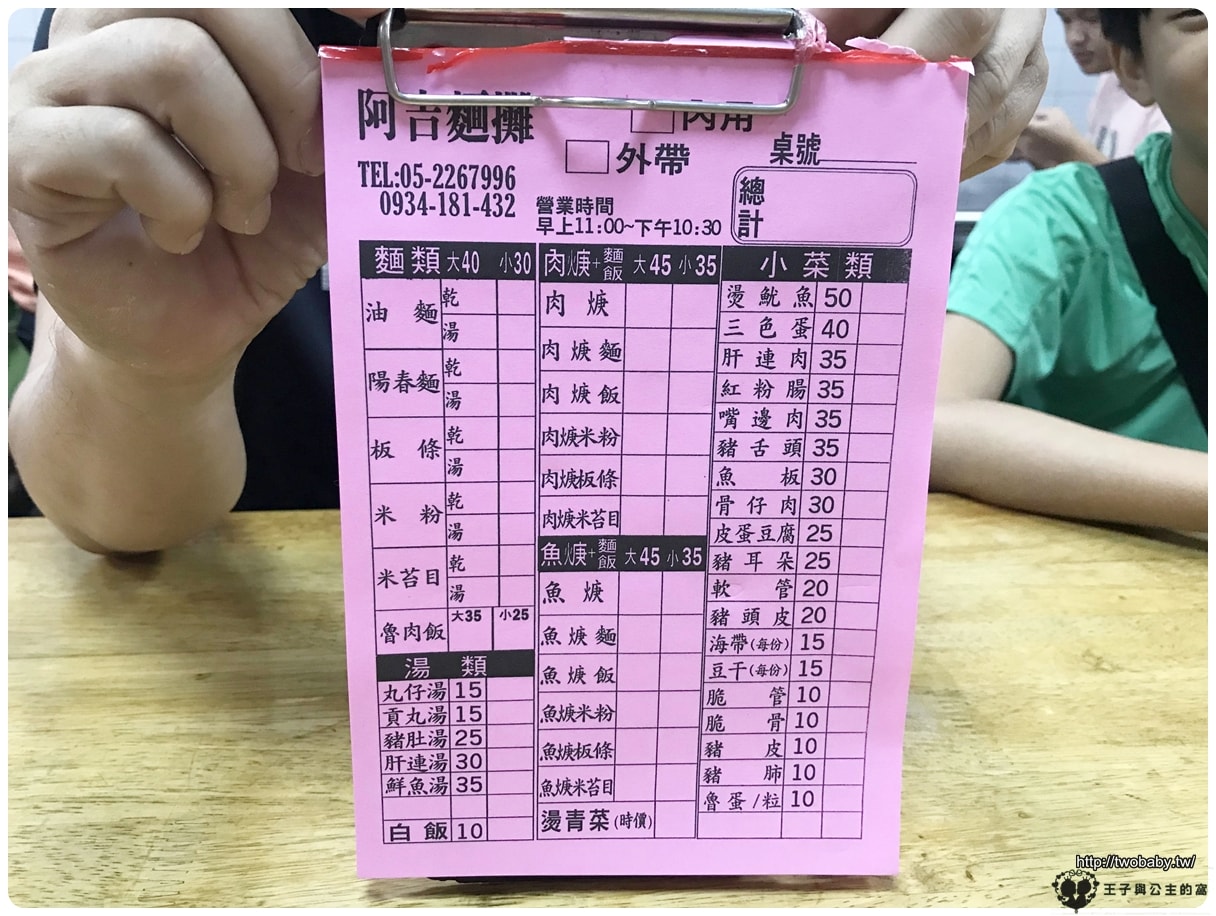 阿吉麵攤
內用
外帶
桌號
TEL:05-2267996
0934-181-432
營業時間
早上11:00~下午10:30
總計
麵類 大40 小30
油麵 乾
湯
陽春麵 乾
湯
板條 乾
湯
米粉 乾
湯
米苔目 乾
湯
魯肉飯 大35 小25
湯類
丸仔湯 15
貢丸湯 15
豬肚湯 25
肝連湯 30
鮮魚湯 35
白飯 10
肉焿+麵飯 大45 小35
肉焿
肉焿麵
肉焿飯
肉焿米粉
肉焿板條
肉焿米苔目
魚焿+麵飯 大45 小35
魚焿
魚焿麵
魚焿飯
魚焿米粉
魚焿板條
魚焿米苔目
燙青菜(時價)
小菜類
燙魷魚 50
三色蛋 40
肝連肉 35
紅粉腸 35
嘴邊肉 35
豬舌頭 35
魚板 30
骨仔肉 30
皮蛋豆腐 25
豬耳朵 25
軟管 20
豬頭皮 20
海帶(每份) 15
豆干(每份) 15
脆管 10
脆骨 10
豬皮 10
豬肺 10
魯蛋/粒 10
http://twobaby.tw/
王子與公主的窩